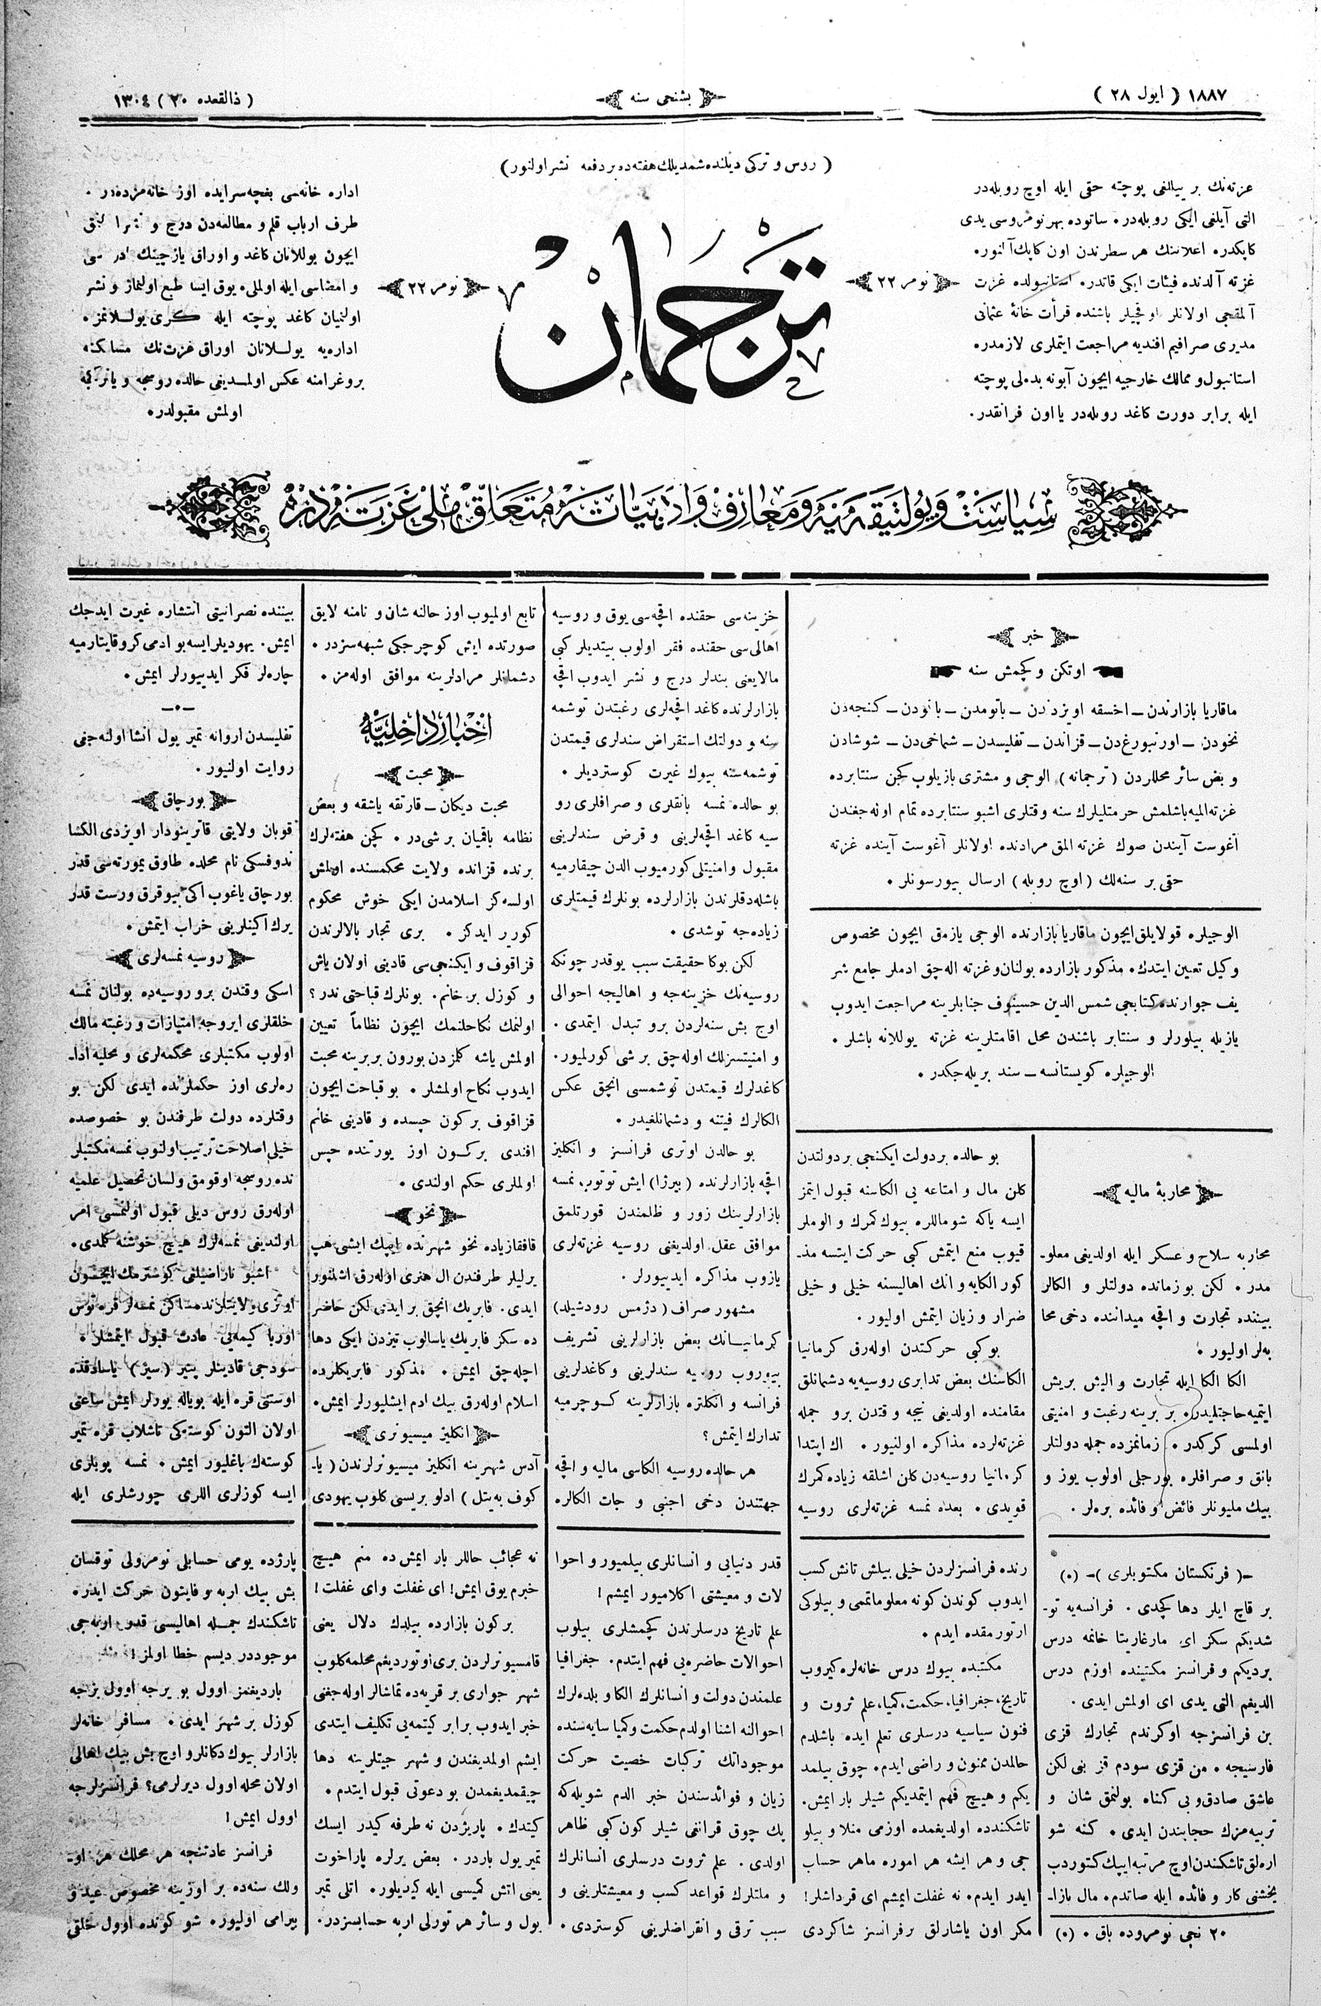 ١٨٨٧ ( ایول ٢٨ )
بشنجی سنه
( ذالقعده ٢٠ ) ١٣٠٤
( روس و ترکی دیلنده شمدیلك هفته ده بر دفعه نشر اولنور )
غزته‌نك بر ییللغی پوچته حقی ایله اوچ روبله‌در
التی آیلغی ایکی روبله‌در۰ ساتوده بهر نومروسی یدی
کاپکدر۰ اعلاننك هر سطرندن اون کاپك آلنور۰
غزته آلدنده فیئات ایکی قاتدر۰ استانبولده غزت
آلمقجی اولانلر اوقجیلر باشنده قرأت خانهٔ عثمانی
مدیری صرافیم افندیه مراجعت ایتملری لازمدر۰
استانبول و ممالك خارجیه ایچون آبونه بدلی پوچته
ایله برابر دورت کاغد روبله‌در یا اون فرانقدر۰
نومر ٢٢
ترجمان
نومر ٢٢
اداره خانه‌سی بغچه‌سرایده اوز خانه‌مزده‌در ۰
طرف ارباب قلم و مطالعه‌دن درج و
ایچون یوللانان کاغد و اوراق یازجینك
و امضاسی ایله اولملی۰ یوق ایسا طبع اولنماز و نشر
اولنمیان کاغد پوچته ایله کری یوللانمز۰
اداره‌یه یوللانان اوراق غزت‌نك مسلکنه
پروغرامنه عکس اولمدیغی حالده روسجه و یا ترکچه
اولمش مقبولدر۰
سیاست و پولتیقه‌یه و معارف و ادبیاته متعلق ملی غزته‌در
خبر
اوتکن و کچمش سنه
ماقاریا بازارندن ــ اخسقه اویزدندن ــ باتومدن ــ باتودن ــ کنجه‌دن
نخودن ــ اورنبورغ‌دن ــ قزاندن ــ تفلیسدن ــ شماخی‌دن ــ شوشادن
و بعض سائر محللردن ( ترجمانه ) الوجی و مشتری یازیلوب کچن سنتابرده
غزته المیه باشلمش حرمتلیلرك سنه وقتلری اشبو سنتابرده تمام اوله‌جغندن
آغوست آیندن صوك غزته المق مرادنده اولانلر آغوست آینده غزته
حقی بر سنه‌لك ( اوچ روبله ) ارسال بیورسونلر ۰
الوجیلره قولایلق ایچون ماقاریا بازارنده الوجی یازمق ایچون مخصوص
وکیل تعیین ایتدك۰ مذکور بازارده بولنان و غزته اله‌چق ادملر جامع شر
یف جوارنده کتابجی شمس الدین حسینوف جنابلرینه مراجعت ایدوب
یازیله بیلورلر و سنتابر باشندن محل اقامتلرینه غزته یوللانه باشلر ۰
الوجیلره کویستانسه ــ سند بریله‌جکدر ۰
محاربهٔ مالیه
محاربه سلاح و عسکر ایله اولدیغی معلو-
مدر ۰ لکن بو زمانده دولتلر و الکالر
بیننده تجارت و اقچه میداننده دخی محا
به‌لر اولیور ۰
الکا الکا ایله تجارت و الیش بریش
ایتمیه حاجتلیدر۰ بر برینه رغبت و امنیتی
اولمسی کرکدر ۰ زمانمزده جمله دولتلر
بانق و صرافلره بورجلی اولوب یوز و
بیك ملیونلر فائض و فائده بره‌لر ۰
بو حالده بر دولت ایکنجی بر دولتدن
کلن مال و امتاعه یی الکاسنه قبول ایتمز
ایسه یاکه شوماللره بیوك کمرك و الوملر
قیوب منع ایتمش کبی حرکت ایتسه مذ-
کور الکایه و انك اهالیسنه خیلی و خیلی
ضرار و زیان ایتمش اولیور ۰
بوکبی حرکتدن اوله‌رق کرمانیا
الکاسنك بعض تدابری روسیه‌یه دشمانلق
مقامنده اولدیغی نیجه و قتدن برو جمله
غزته‌لرده مذاکره اولنیور ۰ اك ابتدا
کرمانیا روسیه‌دن کلن اشلقه زیاده کمرك
قویدی ۰ بعده نمسه غزته‌لری روسیه
خزینه‌سی حقنده اقچه‌سی یوق و روسیه
اهالی‌سی حقنده فقر اولوب بیتدیلر کبی
مالایعنی بندلر درج و نشر ایدوب اقچه
بازارلرنده کاغد اقچه‌لری رغبتدن توشمه
سنه و دولتك استقراض سندلری قیمتدن
توشمه‌سنه بیوك غیرت کوستردیلر ۰
بو حالده نمسه بانقلری و صرافلری رو
سیه کاغد اقچه‌لرینی و قرض سندلرینی
مقبول و امنیتلی کورمیوب الدن چیقارمیه
باشله‌دقلرندن بازارلرده بونلرك قیمتلری
زیاده‌جه توشدی ۰
لکن بوکا حقیقت سبب یوقدر چونکه
روسیه‌نك خزینه‌جه و اهالیجه احوالی
اوچ بش سنه‌لردن برو تبدل ایتمدی ۰
و امنیتسزلك اوله‌چق بر شی کورلمیور۰
کاغدلرك قیمتدن توشمسی انچق عکس
الکالرك فیتنه و دشمانلغیدر ۰
بو حالدن اوتری فرانسز و انکلیز
اقچه بازارلرنده ( بیرژا ) ایش توتوب نمسه
بازارلرینك زور و ظلمندن قورتلمق
موافق عقل اولدیغنی روسیه غزته‌لری
یازوب مذاکره ایدییورلر ۰
مشهور صراف ( دژمس رودشیلد )
کرمانیانك بعض بازارلرینی تشریف
بیوروب روسیه سندلرینی و کاغدلرینی
فرانسه و انکلتره بازارلرینه کوچرمیه
تدارك ایتمش ؟
هر حالده روسیه الکاسی مالیه و اقچه
جهتندن دخی اجنبی و جات الکالره
تابع اولمیوب اوز حالنه شان و نامنه لایق
صورتده ایش کوچرجکی شبهه سزدر ۰
دشمانلر مرادلرینه موافق اوله‌مز ۰
اخبار داخلیه
محبت
محبت دیکان ــ قارتقه یاشقه و بعض
نظامه باقمیان بر شی‌در ۰ کچن هفته‌لرك
برنده قزانده ولایت محکمسنده اولمش
اولسه‌کز اسلامدن ایکی خوش محکوم
کورر ایدکز ۰ بری تجار بالالرندن
قزاقوف و ایکنجی‌سی قادینی اولان یاش
و کوزل بر خانم۰ بونلرك قباحتی ندر؟
اولنمك نکاحلنمك ایچون نظاماً تعیین
اولمش یاشه کلمزدن بورون بر برینه محبت
ایدوب نکاح اولمشلر ۰ بو قباحت ایچون
قزاقوف برکون حبسده و قادینی خانم
افندی برکون اوز یورتنده حبس
اولملری حکم اولندی ۰
نخو
قافقازیاده نخو شهرنده ایپك ایشی هپ
یرلیلر طرفندن ال هنری اوله‌رق اشلنور
ایدی۰ فابریك انچق بر ایدی لکن حاضر
ده سکز فابریك یاسالوب تیزدن ایکی دها
اچله‌جق ایمش ۰ مذکور فابریکلرده
اسلام اوله‌رق بیك ادم ایشلیورلر ایمش۰
انکلیز میسیونری
آدس شهرینه انکلیز میسیونرلرندن ( یا-
کوف یه‌یتل ) ادلو بریسی کلوب یهودی
بیننده نصرانیتی انتشاره غیرت ایدجك
ایمش۰ یهودیلر ایسه بو ادمی کرو قایتارمیه
چاره‌لر فکر ایدییورلر ایمش ۰
تفلیسدن اروانه تمیر یول انشا اوله‌جغی
روایت اولنیور ۰
بورچاق
قوبان ولایتی قاترینودار اویزدی الکسا
ندوفسکی نام محلده طاوق یمورته‌سی قدر
بورچاق یاغوب اکی‌جیوقرق ورست قدر
یرك اکینلرینی خراب ایتمش ۰
روسیه نمسه‌لری
اسکی وقتدن برو روسیه‌ده بولنان نمسه
خلقلری ایروجه امتیازات و رغبته مالك
اولوب مکتبلری محکمه‌لری و محلیه ادا-
ره‌لری اوز حکملرنده ایدی لکن بو
وقتلرده دولت طرفندن بو خصوصده
خیلی اصلاحت ترتیب اولنوب نمسه مکتبلر
نده روسجه اوقومق و لسان تحصیل علمیه
اوله‌رق روس دیلی قبول اولنمسی امر
اولندیغی نمسه‌لرك هیچ خوشنه کلمدی ۰
اشبو ناراضیلغی کوسترمك ایچون
اوتری ولایتلرنده ساکن نمسه‌لر قره توس
اوربا کیمه‌یی عادت قبول ایتمشلر ۰
سودجی قادینلر پنیر ( سیر ) یاسادقده
اوستی قره ایله بویاله یورلر ایمش ساعتی
اولان التون کوستکی تاشلاب قره تمیر
کوستك باغلیور ایمش ۰ نمسه پوپلری
ایسه کوزلری اللری چورشلری ایله
ــ( فرنکستان مکتوبلری )ــ (٠)
بر قاچ ایلر دها کچدی ۰ فرانسه‌یه تو-
شدیکم سکز ای مارغاریتا خانمه درس
بردیکم و فرانسز مکتبینده اوزم درس
الدیغم التی یدی ای اولمش ایدی ۰
بن فرانسزجه اوکرندم تجارك قزی
فارسیجه ۰ من قزی سودم قز بنی لکن
عاشق صادق و بی کناه بولنمق شان و
تربیه‌مزك حجابندن ایدی ۰ کنه شو
اره‌لق تاشکندن اوچ مرتبه ایپك کتوردب
یخشی کار و فائده ایله صاتدم ۰ مال بازا-
٢٠ نجی نومروده باق ۰ (٠)
رنده فرانسزلردن خیلی بیلش تانش کسب
ایدوب کوندن کونه معلوماتمی و بیلوکی
ارتورمقده ایدم ۰
مکتبده بیوك درس خانه‌لره کیروب
تاریخ، جغرافیا، حکمت، کمیا، علم ثروت و
فنون سیاسیه درسلری تعلم ایده باشلدم
حالمدن ممنون و راضی ایدم۰ چوق بیلمد
یکم و هیچ فهم ایتمدیکم شیلر بار ایمش۰
تاشکندده اولدیغمده اوزمی منلا و بیلو
جی و هر ایشه هر اموره ماهر حساب
ایدر ایدم۰ نه غفلت ایمشم ای قرداشلر!
مکر اون یاشارلق بر فرانسز شاکردی
قدر دنیایی و انسانلری بیلمیور و احوا
لات و معیشتی اکلامیور ایمشم !
علم تاریخ درسلرندن کچمشلری بیلوب
احوالات حاضره‌یی فهم ایتدم۰ جغرافیا
علمندن دولت و انسانلرك الکا و بلده‌لرك
احوالنه اشنا اولدم حکمت و کمیا سایه‌سنده
موجوداتك ترکبات خصیت حرکت
زیان و فوائدسندن خبر الدم شویله‌که
پك چوق قرانغی شیلر کون کبی ظاهر
اولدی ۰ علم ثروت درسلری انسانلرك
و ملتلرك قواعد کسب و معیشتلرینی و
سبب ترقی و انقراضلرینی کوستردی ۰
نه عجائب حاللر بار ایمش ده منم هیچ
خبرم یوق ایمش! ای غفلت وای غفلت!
برکون بازارده بیلدك دلال یعنی
قامسیونرلردن بری اوتوردیغم محلمه کلوب
شهر جواری بر قریه‌ده تماشالر اوله‌جغی
خبر ایدوب برابر کیتمه‌یی تکلیف ایتدی
ایشم اولمدیغندن و شهر جیتلرینه دها
چیقمدیغمدن بو دعوتی قبول ایتدم ۰
کیتدك ۰ پاریژدن نه طرفه کیدر ایسك
تمیر یول باردر ۰ بعض یرلره پاراخوت
یعنی اتش کمیسی ایله کیدیلور۰ اتلی تمیر
یول و سائر هر تورلی اربه حسابسزدر۰
پارژده یومی حسابلی نومرولی توقسان
بش بیك اربه و فایتون حرکت ایدر۰
تاشکندك جمله اهالیسی قدر اربه‌جی
موجوددر دیسم خطا اولمز!
باردیغمز اوول بو یرجه اوول بزجه
کوزل بر شهر ایدی ۰ مسافر خانه‌لر
بازارلر بیوك دکانلر و اوچ بش بیك اهالی
اولان محله اوول دیرلرمی؟ فرانسزلرجه
اوول ایمش!
فرانسز عادتنجه هر محلك هر او-
ولك سنه‌ده بر اوزینه مخصوص عید و
بیرامی اولیور۰ شو کونده اوول خلقی